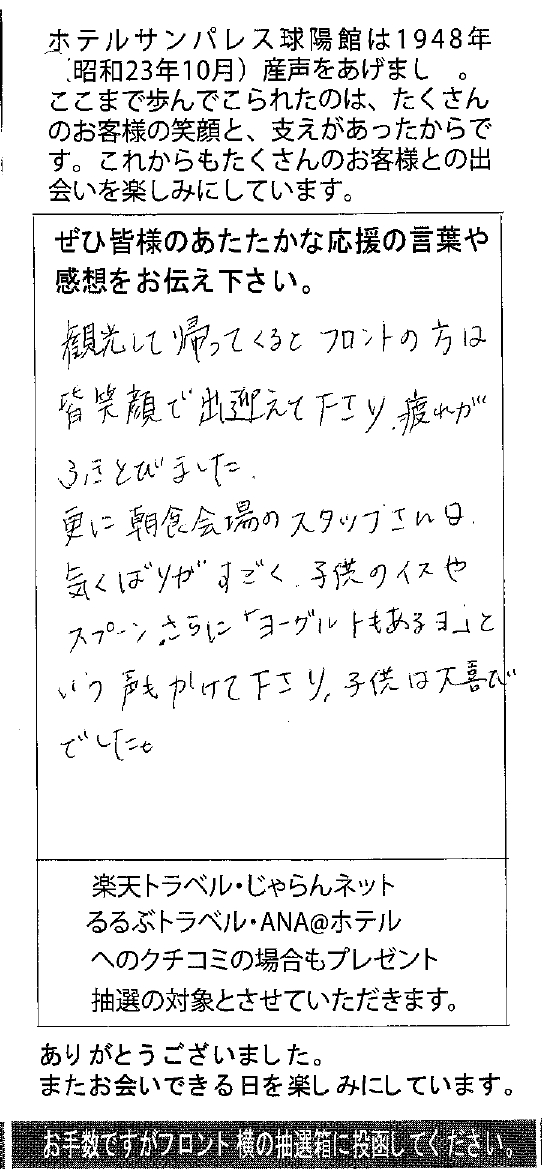 ホテルサンパレス球陽館は1948年
(昭和23年10月）産声をあげまし　。
ここまで歩んでこられたのは、たくさん
のお客様の笑顔と、支えがあったからで
す。これからもたくさんのお客様との出
会いを楽しみにしています。
ぜひ皆様のあたたかな応援の言葉や
感想をお伝え下さい。
観光して帰ってくると フロントの方は
皆笑顔で出迎えて下さり、疲れが
ふきとびました。
更に朝食会場のスタッフさんは、
気くばりがすごく、子供のイスや
スプーン、さらに「ヨーグルトもあるヨ」と
いう声もかけて下さり、子供は大喜び
でした。
楽天トラベル・じゃらんネット
るるぶトラベル・ANA@ホテル
へのクチコミの場合もプレゼント
抽選の対象とさせていただきます。
ありがとうございました。
またお会いできる日を楽しみにしています。
お手数ですがフロント横の抽選箱に投函してください。